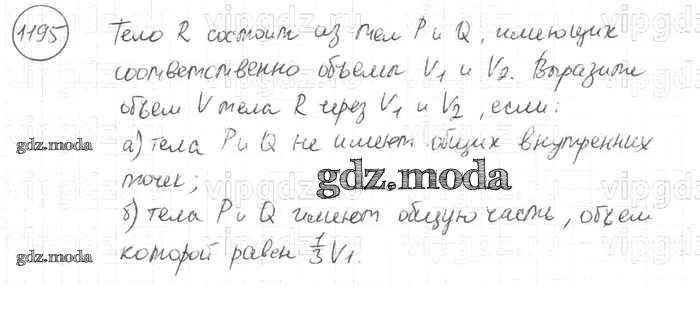 1195 Тело R состоит из тел P и Q, имеющих
соответственно объемы V1 и V2. Выразите
объем V тела R через V1 и V2, если:
gdz.moda а) тела P и Q не имеют общих внутренних
точек;
gdz.moda
б) тела P и Q имеют общую часть, объем
gdz.moda которой равен 1/3 V1.